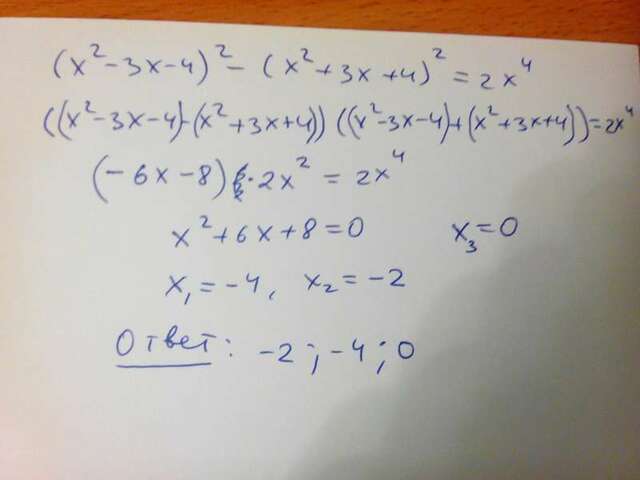 (x²-3x-4)² - (x²+3x+4)² = 2x⁴
((x²-3x-4)-(x²+3x+4))((x²-3x-4)+(x²+3x+4))=2x⁴
(-6x-8)·2x² = 2x⁴
x²+6x+8=0 x₃=0
x₁=-4, x₂=-2
Ответ: -2; -4; 0